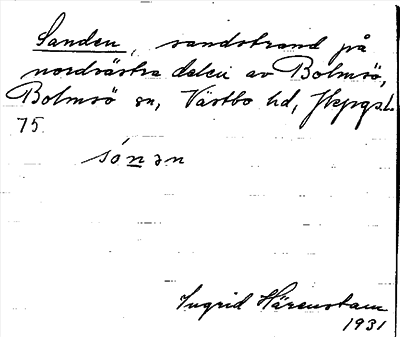 Sanden, sandstrand på
nordvästra delen av Bolmsö,
Bolmsö sn, Västbo hd,
75.
sónən
Ingrid Härenstam
1931